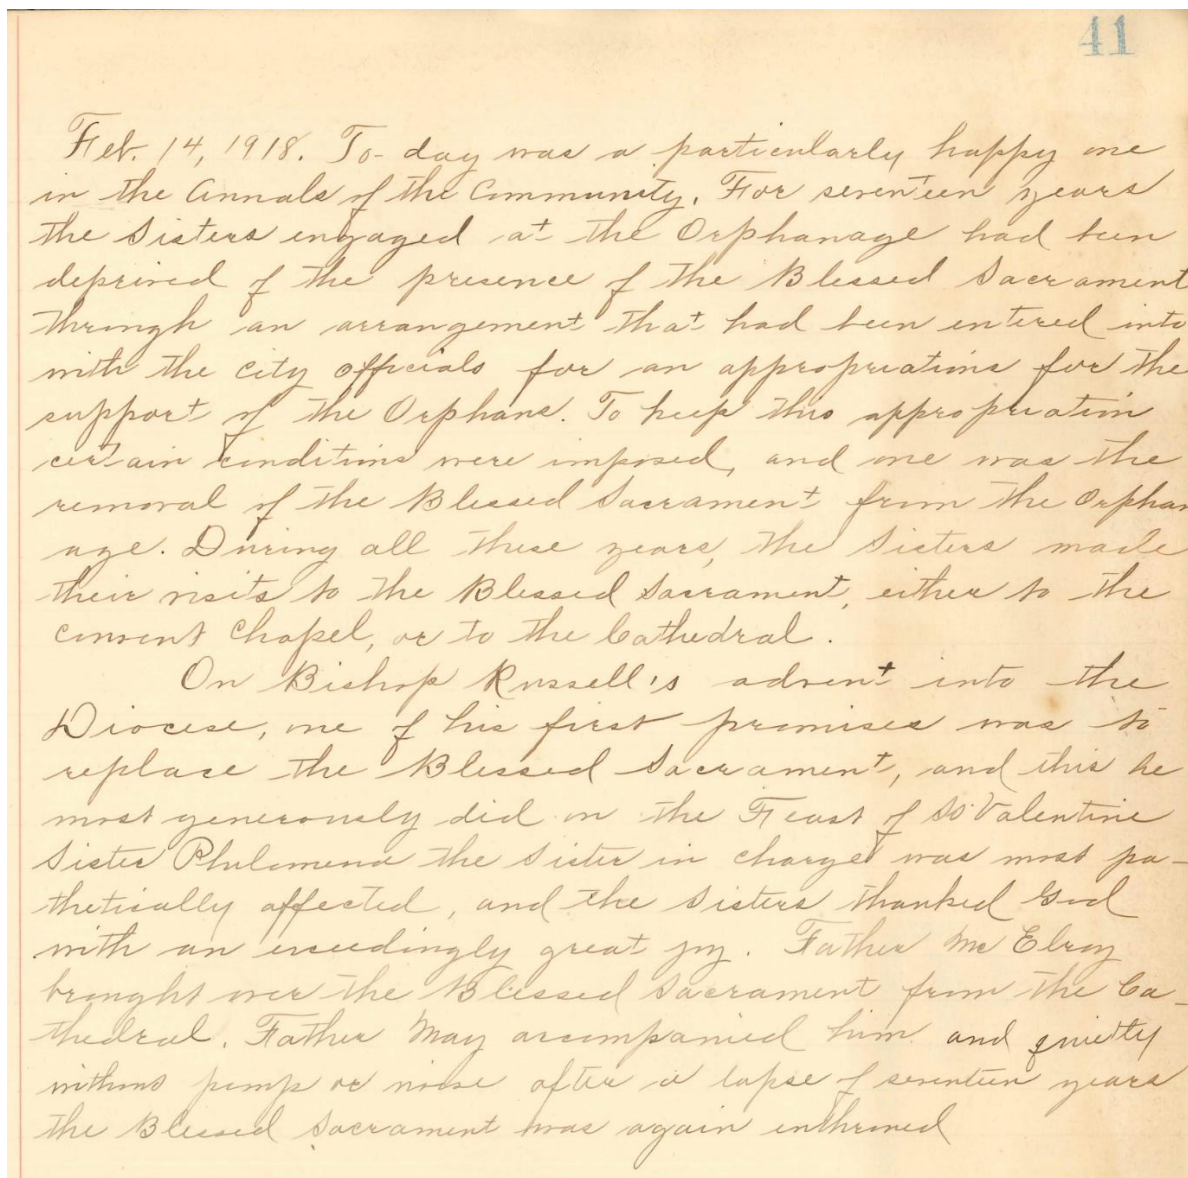 41
Feb. 14, 1918. To-day was a particularly happy one
in the Annals of the Community. For seventeen years
the Sisters engaged at the Orphanage had been
deprived of the presence of the Blessed Sacrament
through an arrangement that had been entered into
with the city officials for an appropriations for the
support of the Orphans. To keep this appropriation
certain conditions were imposed, and one was the
removal of the Blessed Sacrament from the Orphan
age. During all these years, the Sisters made
their visits to the Blessed Sacrament, either to the
convent Chapel, or to the Cathedral.
On Bishop Russell's advent into the
Diocese, one of his first promises was to
replace the Blessed Sacrament, and this he
most generously did on the Feast of St Valentine
Sister Philomena the Sister in charge was most pa-
thetically affected, and the Sisters thanked God
with an exceedingly great joy. Father McElroy
brought over the Blessed Sacrament from the Ca-
thedral. Father May accompanied him and quietly
without pomp or noise after a lapse of seventeen years
the Blessed Sacrament was again enthroned